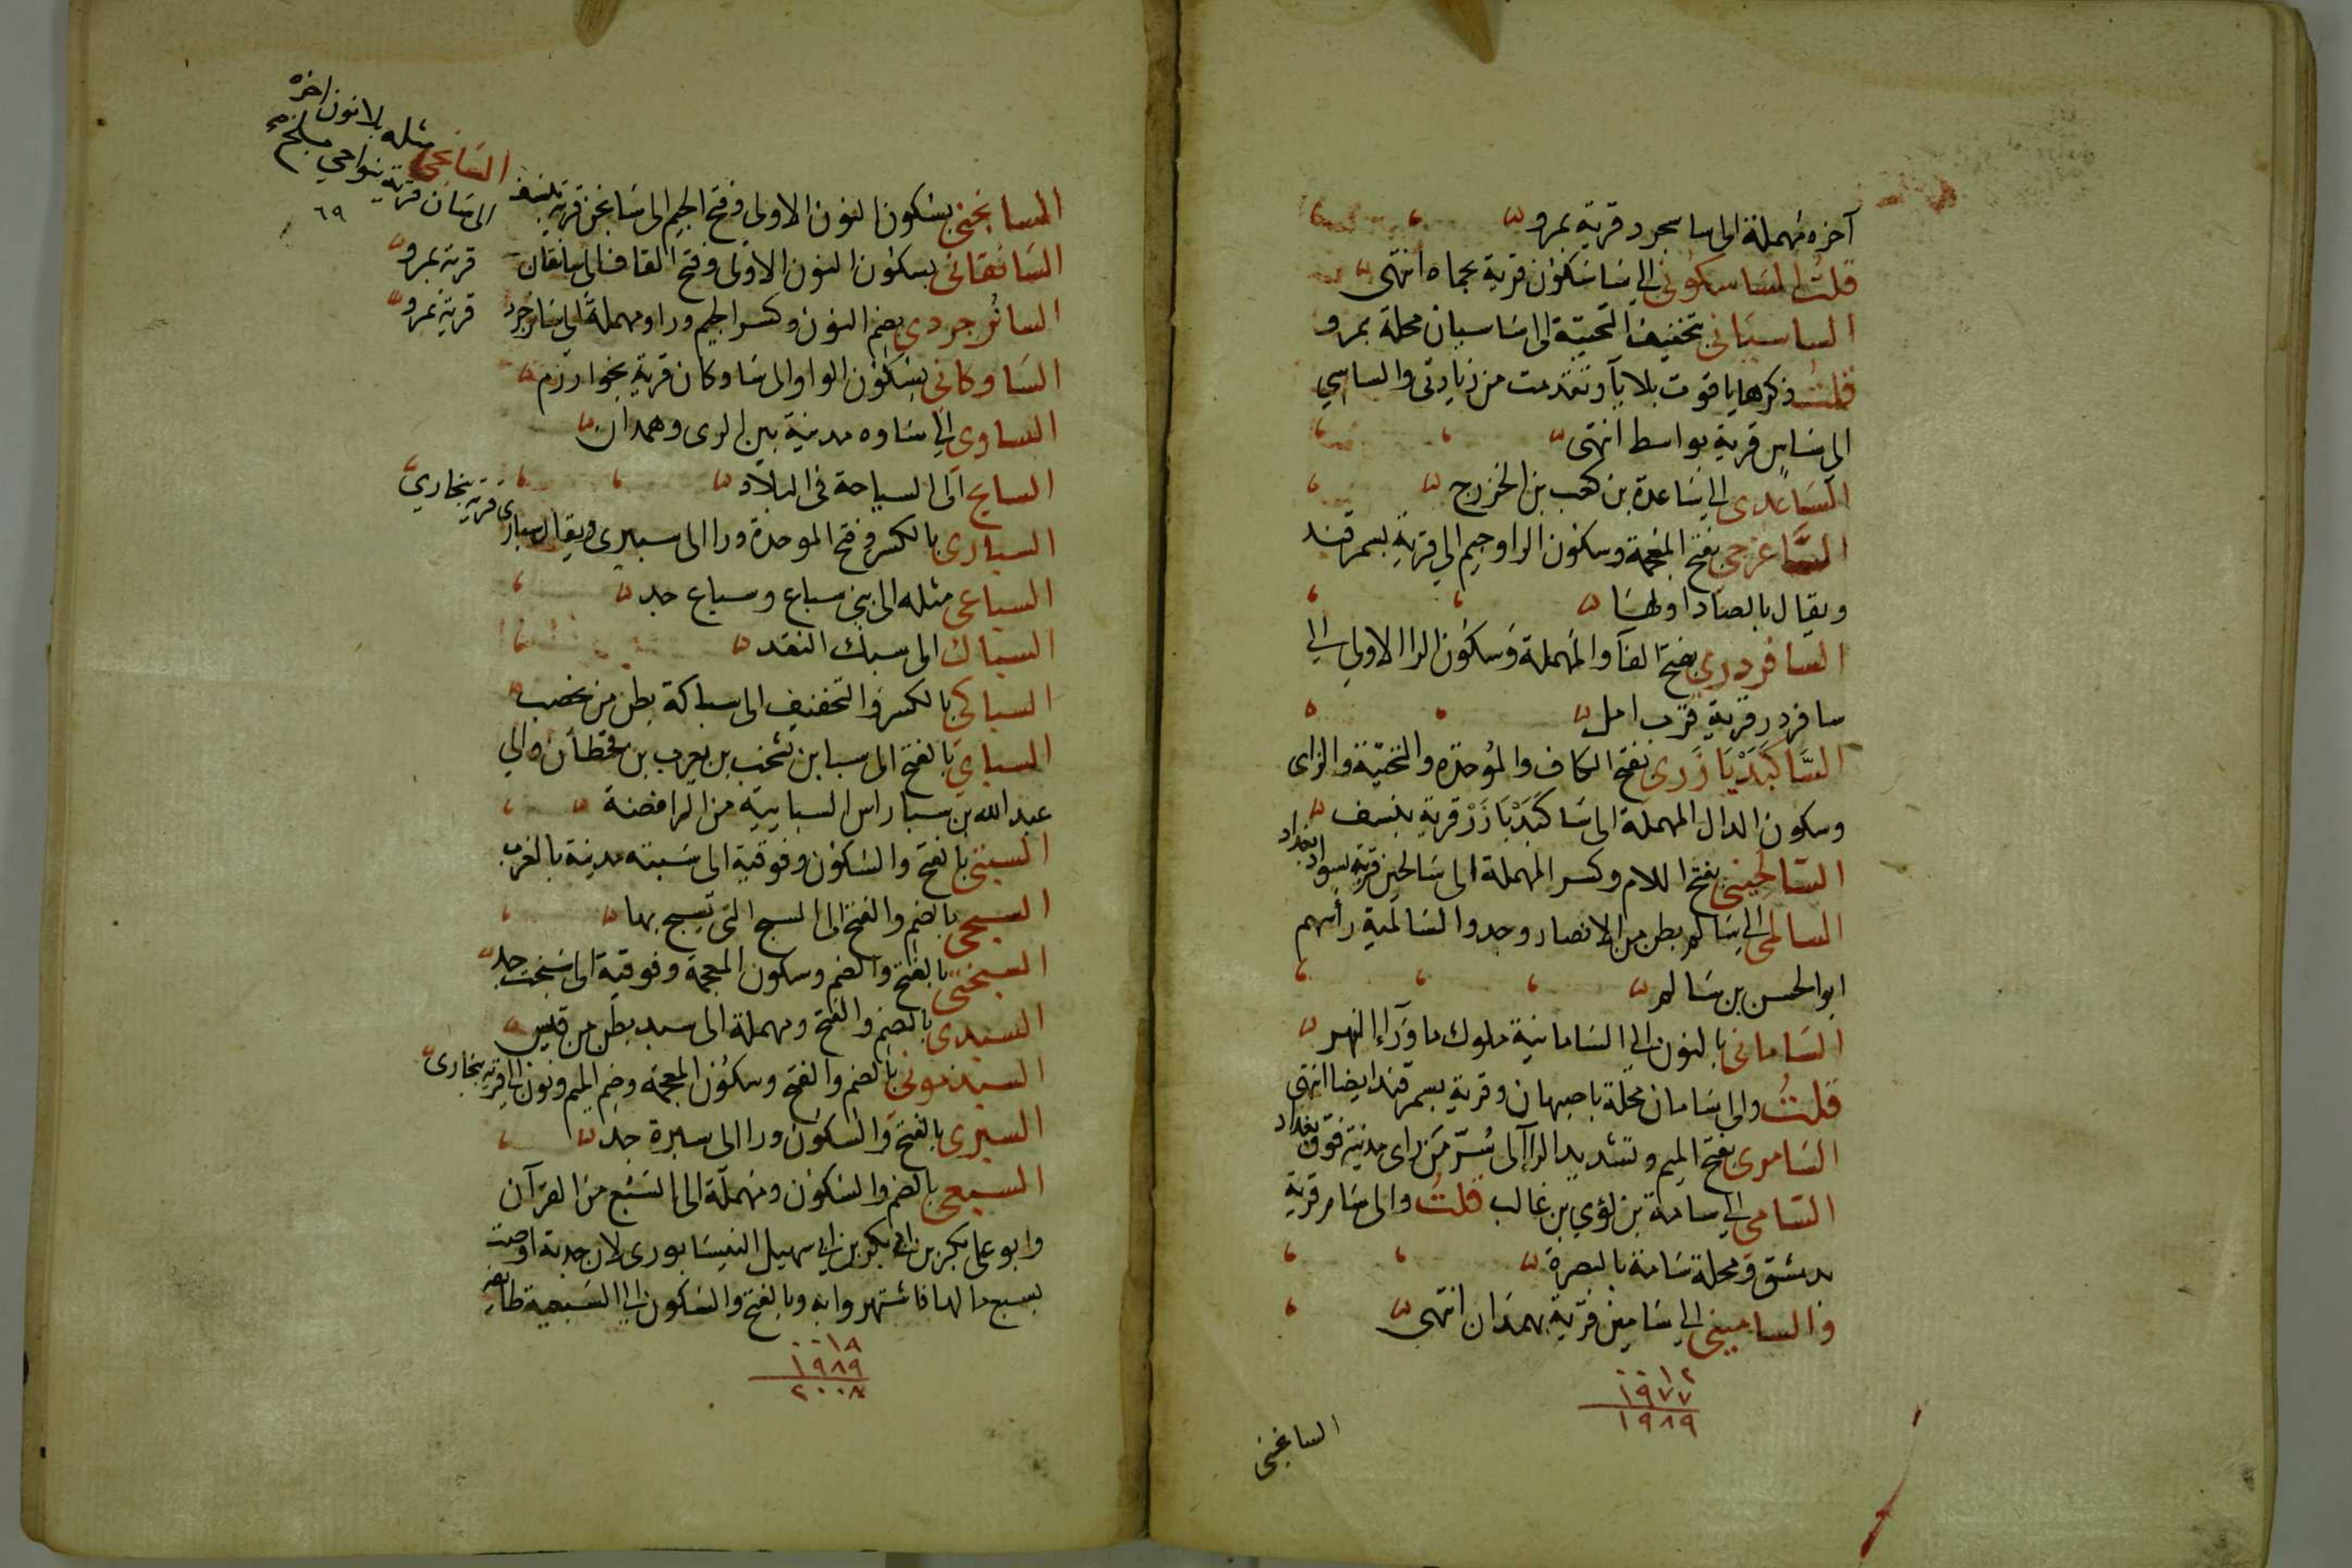 آخره مهملة الى ساسجرد قرية بمرو
قلت الساسكوني الى ساسكون قرية بحماه انتهى
الساسياني بتخفيف التحتية الى ساسيان محلة بمرو
قلت وذكرها ياقوت بلا يآ وتقدمت من زيادتي والساسي
الى ساس قرية بواسط انتهى
الساعدى الى ساعدة بن كعب بن الخزرج
الساغرجي بفتح المعجمة وسكون الرا وجيم الى قرية بسمرقند
ويقال بالصاد اولها
السافردرى بفتح الفآ والمهملة وسكون الرا الاولى الى
سافردر قرية قرب امل
الساكبديازرى بفتح الكاف والموحدة والتحتية والزاى
وسكون الدال المهملة الى ساكبديازر قرية بنسف
السالحينى بفتح اللام وكسر المهملة الى سالحين قرية بسواد بغداد
السالمى الى سالم بطن من الانصار وجد والسالمية رأسهم
ابو الحسن بن سالم
السامانى بالنون الى السامانية ملوك ما ورآء النهر
قلت والى سامان محلة باصبهان وقرية بسمرقند ايضا انتهى
السامرى بفتح الميم وتشديد الرا الى سر من راى مدينة فوق بغداد
السامى الى سامة بن لؤي بن غالب قلت والى سام قرية
بدمشق ومحلة سامة بالبصرة
والسامينى الى سامين قرية بهمدان انتهى
٠٠١٢
١٩٧٧
١٩٨٩
السانجنى
السانجى مثله بلا نون اخره
الى سان قرية بنواحي بلخ صح
٦٩
السانجنى بسكون النون الاولى وفتح الجيم الى سانجن قرية بنسف
السانقانى بسكون النون الاولى وفتح القاف الى سانقان قرية بمرو
السانُوجردي بضم النون وكسر الجيم ورا ومهملة الى سانوجرد قرية بمرو
الساوكانى بسكون الواو الى ساوكان قرية بخوارزم
الساوى الى ساوه مدينة بين الرى وهمدان
السايح الى السياحة فى البلاد
السبارى بالكسر وفتح الموحدة ورا الى سبيرى ويقال سبارى قرية ببخارى
السباعى مثله الى بنى سباع وسباع جد
السباك الى سبك النقد
السباكى بالكسر والتخفيف الى سباكة بطن من يحصب
السباي بالفتح الى سبا بن يشجب بن يعرب بن قحطان والى
عبد الله بن سبا راس السبايية من الرافضة
السبتى بالفتح والسكون وفوقية الى سبته مدينة بالغرب
السبحى بالضم والفتح الى السبح التى يسبح بها
السبختى بالفتح والضم وسكون المعجمة وفوقية الى سبخت جد
السبدى بالضم والفتح ومهملة الى سبد بطن من قيس
السبذمونى بالضم والفتح وسكون المعجمة وضم الميم ونون الى قرية ببخارى
السبرى بالفتح والسكون ورا الى سبرة جد
السبعى بالضم والسكون ومهملة الى السبع من القرآن
وابو على بكر بن ابى بكر بن ابى سهيل النيسابورى لان جدته اوصت
بسبع مالها فاشتهروا به وبالفتح والسكون الى السبعية طايفه
٠٠١٨
١٩٨٩
٢٠٠٨